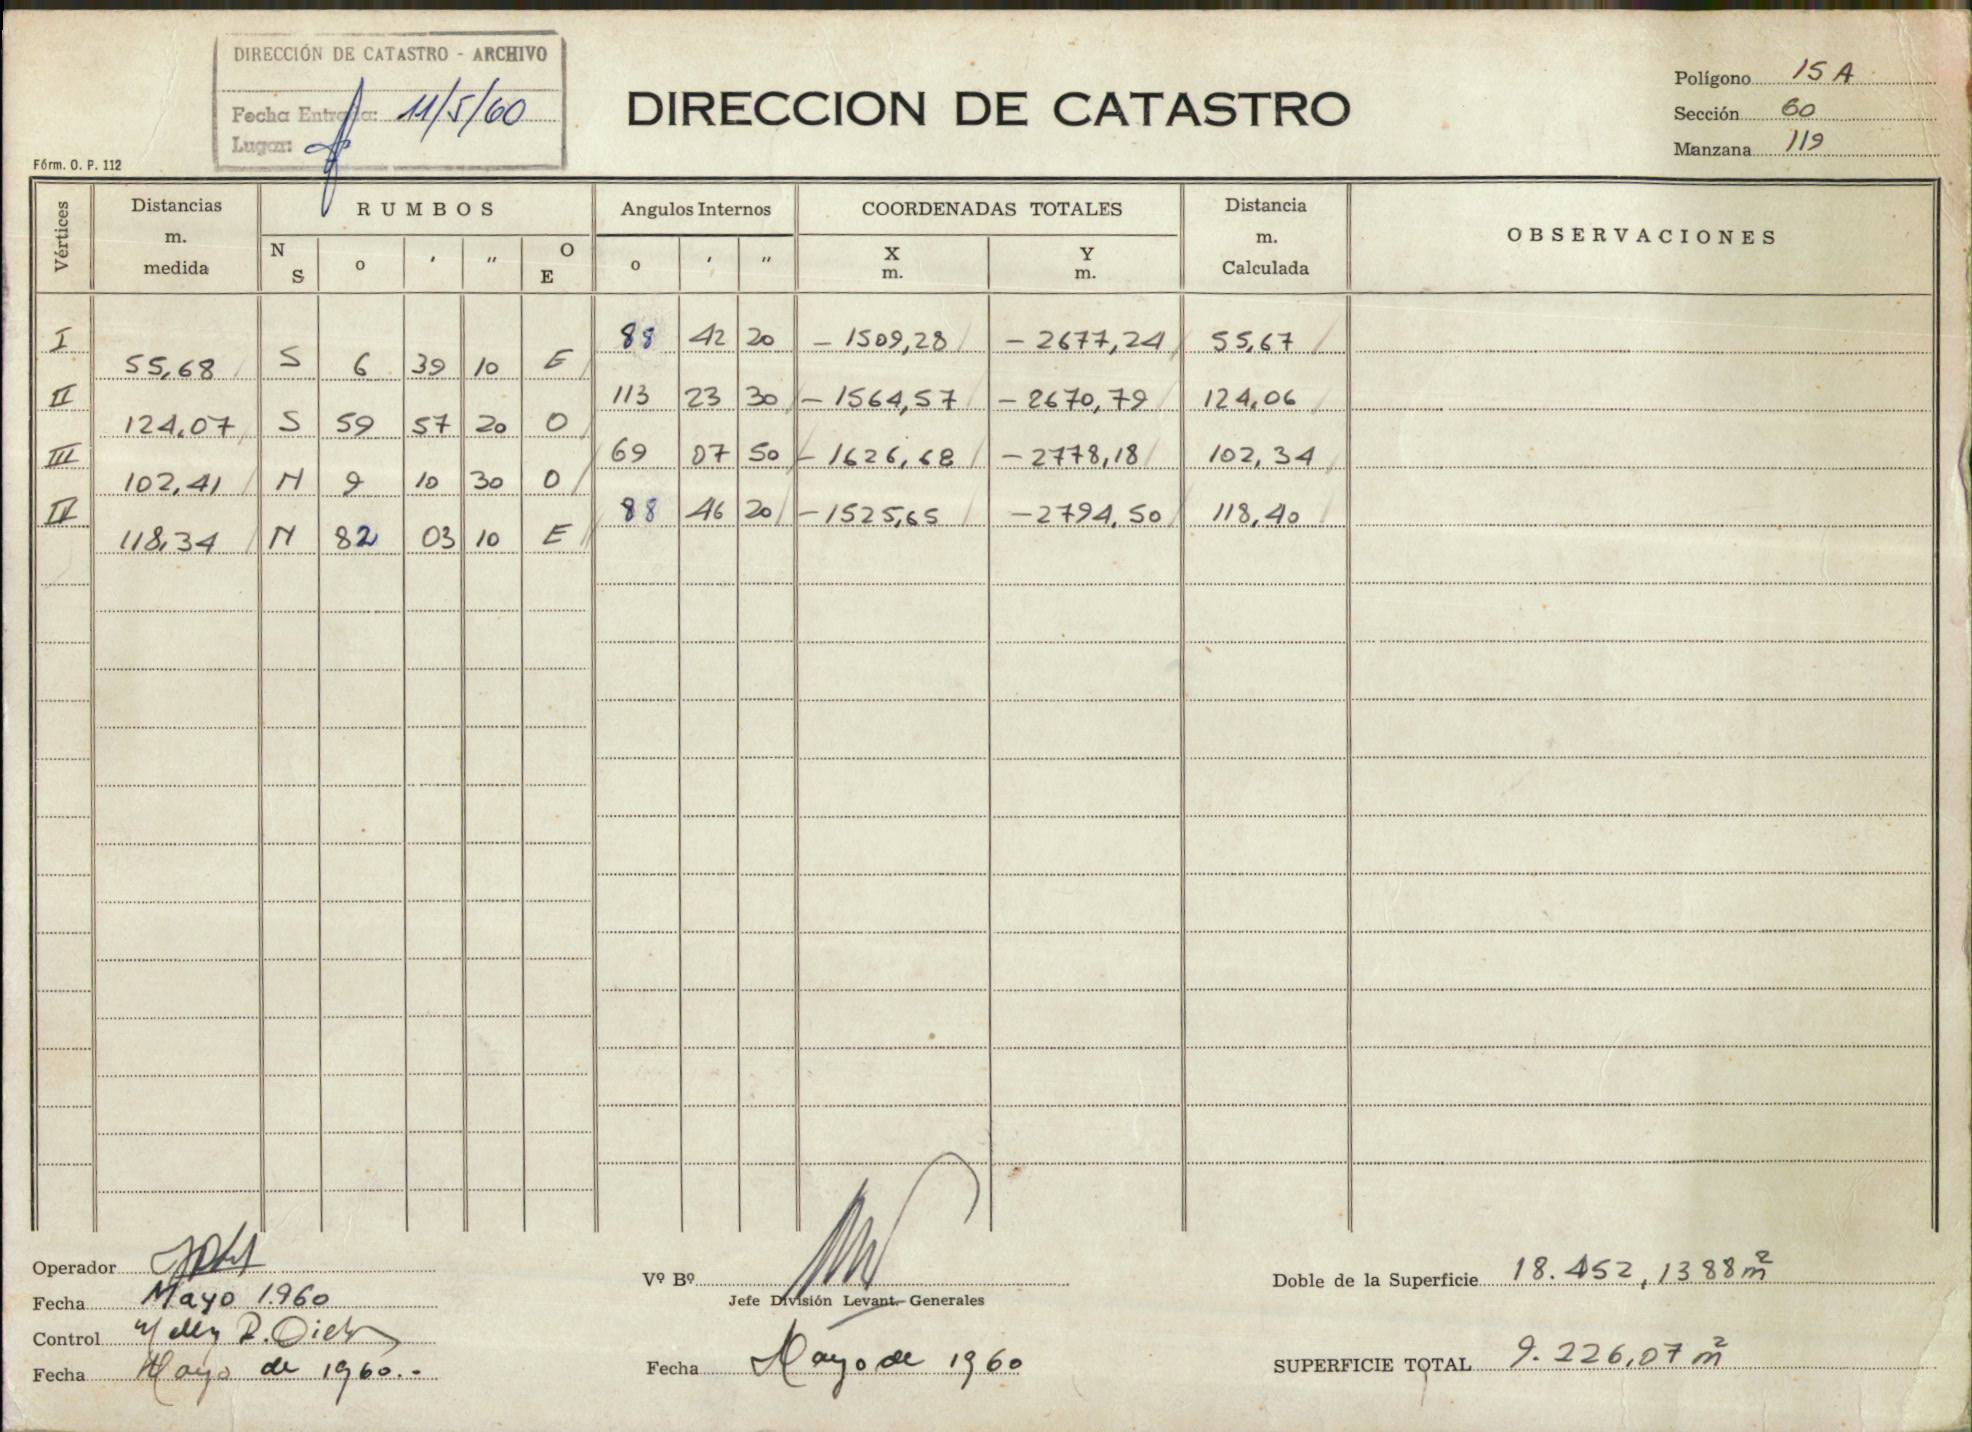 DIRECCIÓN DE CATASTRO - ARCHIVO
Fecha Entrada: 11/5/60
Lugar:
DIRECCION DE CATASTRO
Polígono 15 A
Sección 60
Manzana 119
Fórm. O. P. 112
Vértices Distancias m. medida RUMBOS Angulos Internos COORDENADAS TOTALES Distancia m. Calculada OBSERVACIONES
N S o ' " O E o ' " X m. Y m.
I 88 42 20 - 1509,28 - 2677,24 55,67
55,68 S 6 39 10 E
II 113 23 30 - 1564,57 - 2670,79 124,06
124,07 S 59 57 20 O
III 69 07 50 - 1626,68 - 2778,18 102,34
102,41 N 9 10 30 O
IV 88 46 20 - 1525,65 - 2794,50 118,40
118,34 N 82 03 10 E
Operador
Fecha Mayo 1.960
Control
Fecha Mayo de 1960.-
Vº Bº
Jefe División Levant. Generales
Fecha Mayo de 1960
Doble de la Superficie 18.452,1388 m²
SUPERFICIE TOTAL 9.226,07 m²